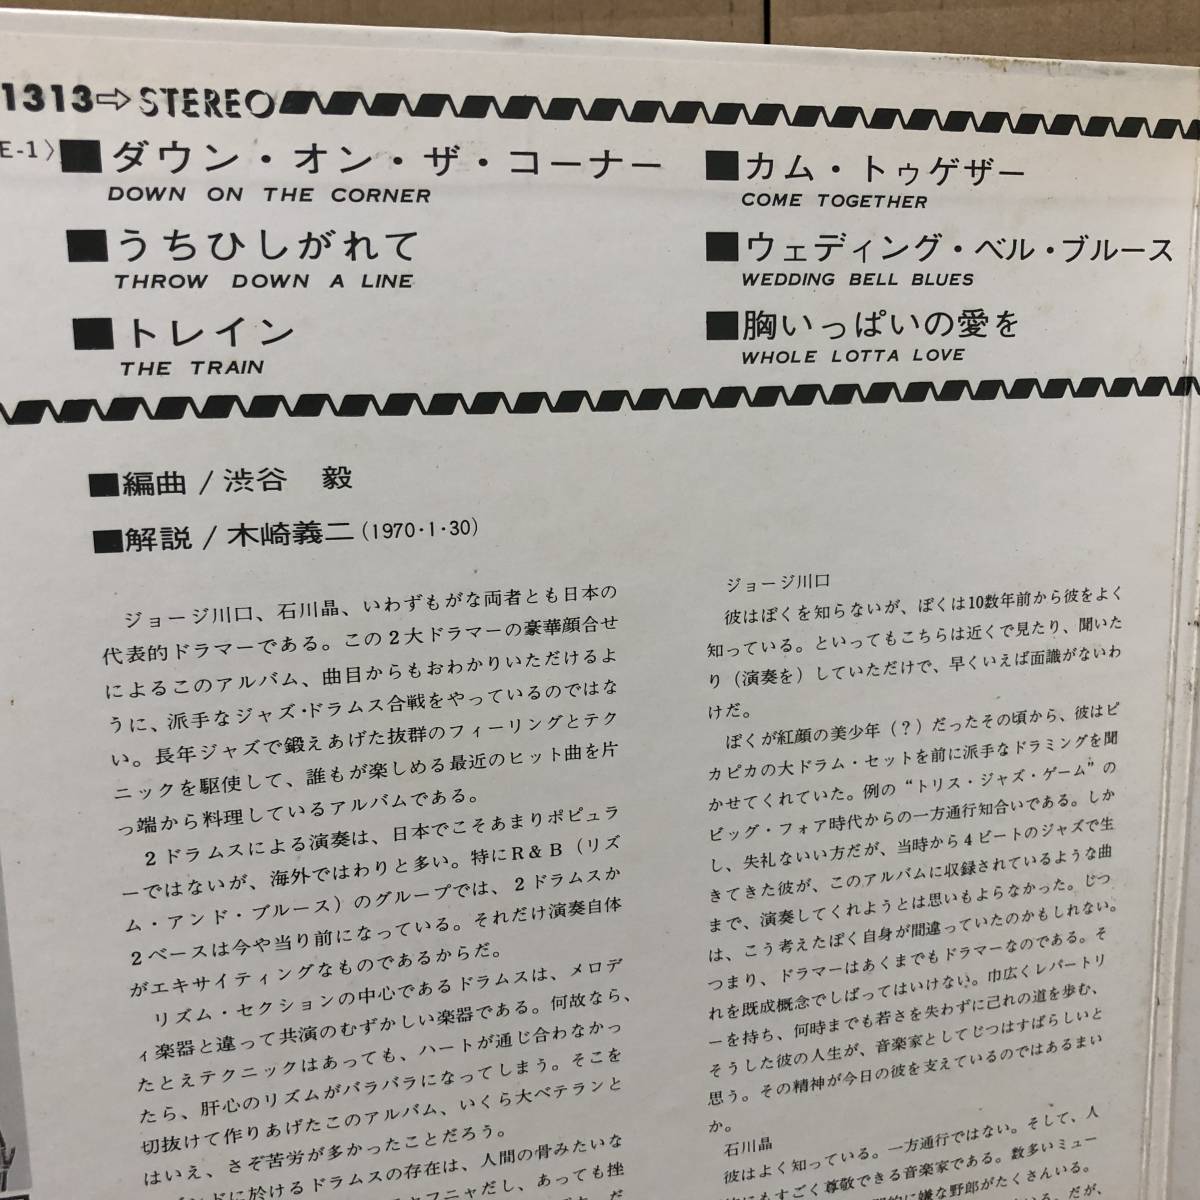 1313⇨STEREO
E-1〉
■ダウン・オン・ザ・コーナー
DOWN ON THE CORNER
■うちひしがれて
THROW DOWN A LINE
■トレイン
THE TRAIN
■カム・トゥゲザー
COME TOGETHER
■ウェディング・ベル・ブルース
WEDDING BELL BLUES
■胸いっぱいの愛を
WHOLE LOTTA LOVE
■編曲/渋谷 毅
■解説/木崎義二(1970・1・30)
ジョージ川口、石川晶、いわずもがな両者とも日本の
代表的ドラマーである。この2大ドラマーの豪華顔合せ
によるこのアルバム、曲目からもおわかりいただけるよ
うに、派手なジャズ・ドラムス合戦をやっているのではな
い。長年ジャズで鍛えあげた抜群のフィーリングとテク
ニックを駆使して、誰もが楽しめる最近のヒット曲を片
っ端から料理しているアルバムである。
2ドラムスによる演奏は、日本でこそあまりポピュラ
ーではないが、海外ではわりと多い。特にR&B(リズ
ム・アンド・ブルース)のグループでは、2ドラムスか
2ベースは今や当り前になっている。それだけ演奏自体
がエキサイティングなものであるからだ。
リズム・セクションの中心であるドラムスは、メロデ
ィ楽器と違って共演のむずかしい楽器である。何故なら、
たとえテクニックはあっても、ハートが通じ合わなかっ
たら、肝心のリズムがバラバラになってしまう。そこを
切抜けて作りあげたこのアルバム、いくら大ベテランと
はいえ、さぞ苦労が多かったことだろう。
ンドに於けるドラムスの存在は、人間の骨みたいな
フニャだし、あっても挫
ジョージ川口
彼はぼくを知らないが、ぼくは10数年前から彼をよく
知っている。といってもこちらは近くで見たり、聞いた
り(演奏を)していただけで、早くいえば面識がないわ
けだ。
ぼくが紅顔の美少年(?)だったその頃から、彼はピ
カピカの大ドラム・セットを前に派手なドラミングを聞
かせてくれていた。例の“トリス・ジャズ・ゲーム”の
ビッグ・フォア時代からの一方通行知合いである。しか
し、失礼ないい方だが、当時から4ビートのジャズで生
きてきた彼が、このアルバムに収録されているような曲
まで、演奏してくれようとは思いもよらなかった。じつ
は、こう考えたぼく自身が間違っていたのかもしれない。
つまり、ドラマーはあくまでもドラマーなのである。そ
れを既成概念でしばってはいけない。巾広くレパートリ
ーを持ち、何時までも若さを失わずに己れの道を歩む、
そうした彼の人生が、音楽家としてじつはすばらしいと
思う。その精神が今日の彼を支えているのではあるまい
か。
石川晶
彼はよく知っている。一方通行ではない。そして、人
にもすごく尊敬できる音楽家である。数多いミュー
に嫌な野郎がたくさんいる。